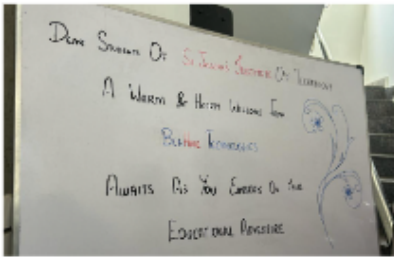 Dear Students Of St Joseph's Institute Of Technology
A Warm & Hearty Welcome From
Technologies
Awaits As You Embark On Your
Educational Adventure